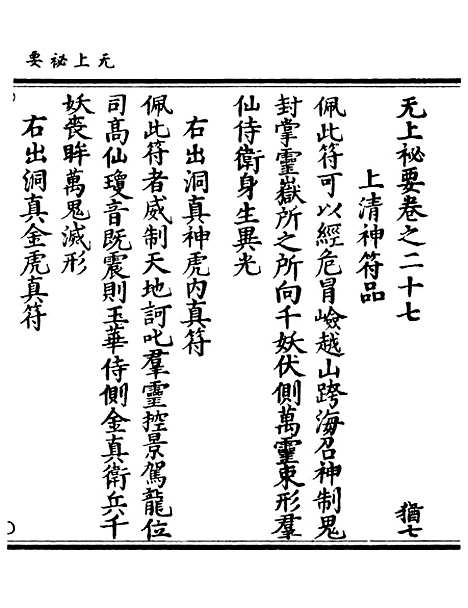 无上祕要
无上祕要卷之二十七 猶七
上清神符品
佩此符可以經危冒嶮越山跨海召神制鬼
封掌靈嶽所之所向千妖伏側萬靈束形羣
仙侍衛身生異光
右出洞真神虎内真符
佩此符者威制天地訶叱羣靈控景駕龍位
司高仙瓊音既震則玉華侍側金真衛兵千
妖喪眸萬鬼滅形
右出洞真金虎真符